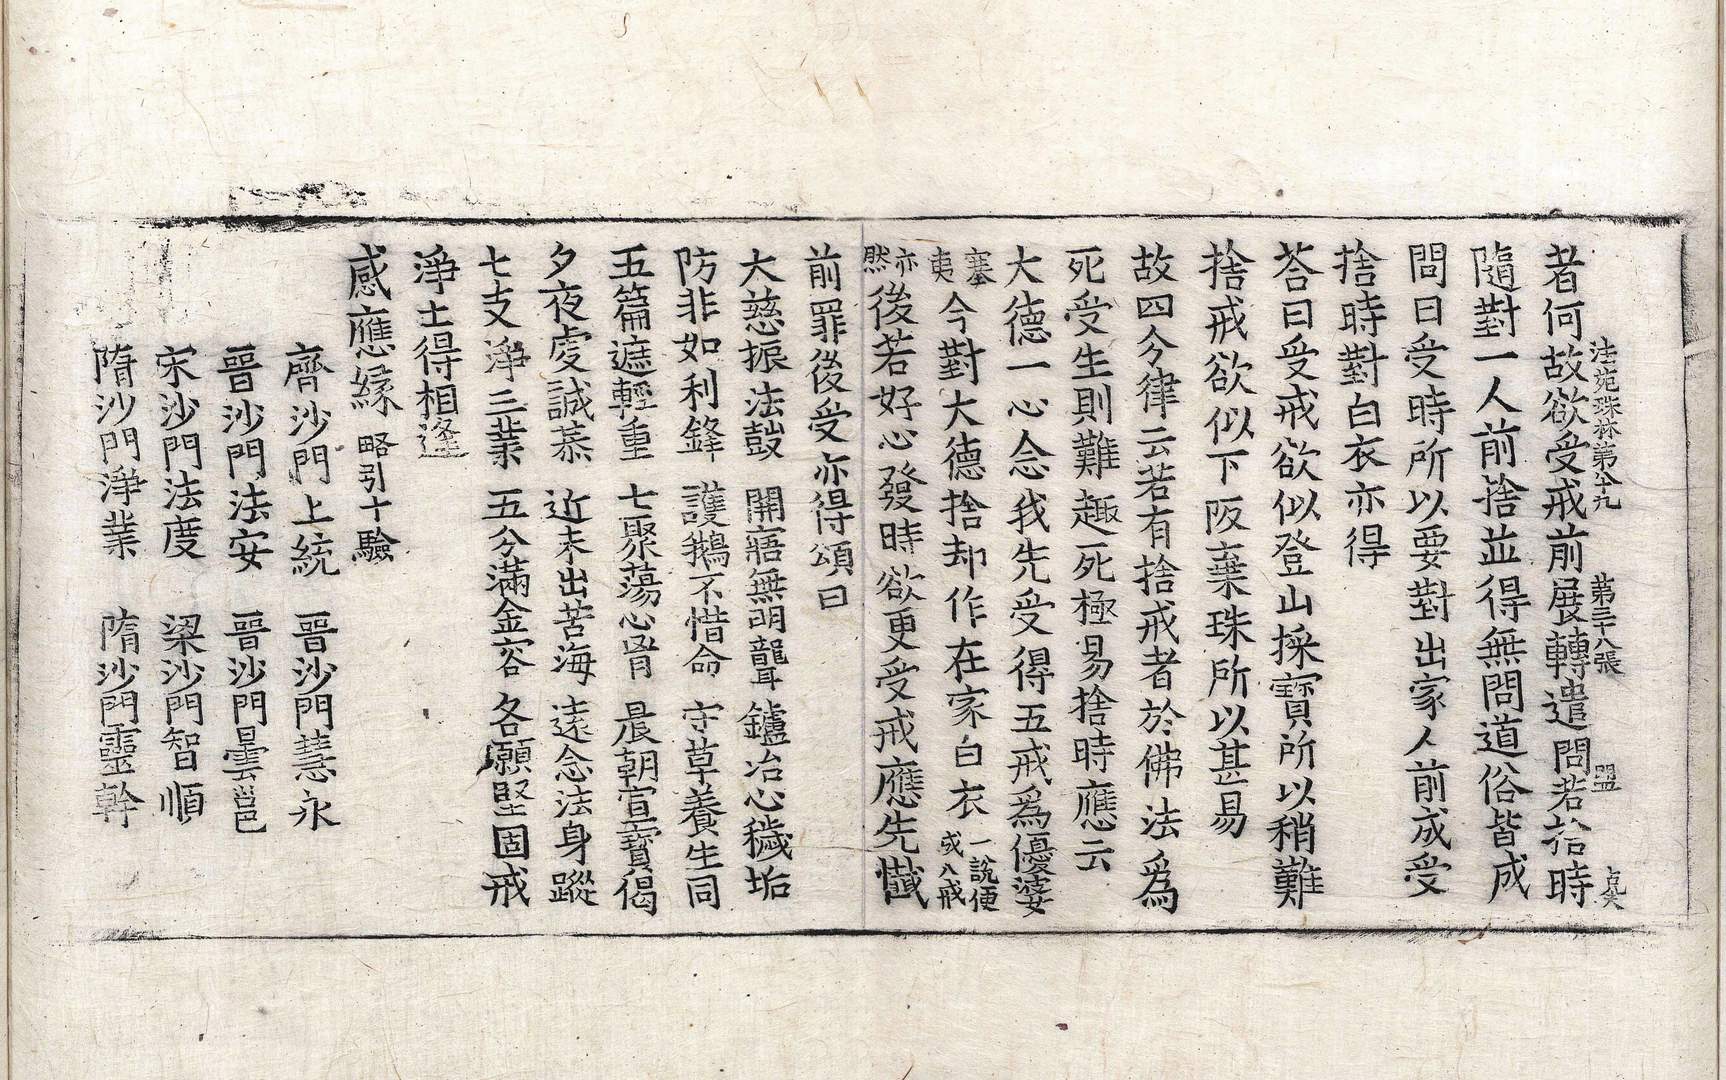 法苑珠林第八十九 第三十八張 盟
者何故欲受戒前展轉遣問若捨時
隨對一人前捨並得無問道俗皆成
問曰受時所以要對出家人前成受
捨時對白衣亦得
荅曰受戒欲似登山採寶所以稍難
捨戒欲似下阪棄珠所以甚易
故四分律云若有捨戒者於佛法爲
死受生則難趣死極易捨時應云
大德一心念我先受得五戒爲優婆
塞夷今對大德捨却作在家白衣一說便成八戒
亦然後若好心發時欲更受戒應先懺
前罪後受亦得頌曰
大慈振法鼓 開寤無明聾 鑪冶心穢垢
防非如利鋒 護鵝不惜命 守草養生同
五篇遮輕重 七聚蕩心胷 晨朝宣寶偈
夕夜虔誠恭 近未出苦海 遠念法身蹤
七支淨三業 五分滿金容 各願堅固戒
淨土得相逢
感應緣 略引十驗
齊沙門上統 晉沙門慧永
晉沙門法安 晉沙門曇邕
宋沙門法度 梁沙門智順
隋沙門淨業 隋沙門靈幹